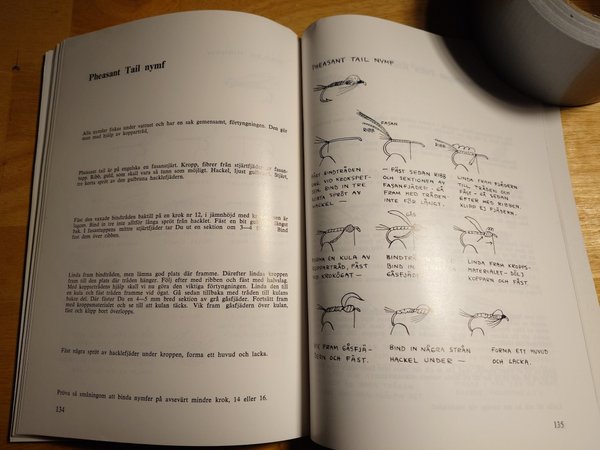 Pheasant Tail nymf
Alla nymfer fiskas under vattnet och har en sak gemensamt, förtyngningen. Den gör
man med hjälp av koppartråd.
Pheasant tail är på engelska en fasanstjärt. Kropp, fibrer från stjärtfjäder av fasan-
tupp. Ribb, guld, som skall vara så tunn som möjligt. Hackel, ljust gulbrunt. Stjärt,
tre korta spröt av den gulbruna hackelfjädern.
Fäst den vaxade bindtråden baktill på en krok nr 12, i jämnhöjd med krokspetsen är
lagom. Bind in tre inte alltför långa spröt från hacklet. Fäst en bit guldribb
bak. I fasantuppens mittre stjärtfjäder tar Du ut en sektion om 3—4 Bind
fast dem över ribben.
Linda fram bindtråden, men lämna god plats där framme. Därefter lindas kroppen
fram till den plats där tråden hänger. Följ efter med ribben och fäst med halvslag.
Med koppartrådens hjälp skall vi nu göra den viktiga förtyngningen. Linda den till
en kula och fäst tråden framme vid ögat. Gå sedan tillbaka med tråden till kulans
bakre del. Där fäster Du en 4—5 mm bred sektion av grå gåsfjäder. Fortsätt fram
med kroppsmaterialet och se till att kulan täcks. Vik fram gåsfjädern över kulan,
fäst och klipp bort överlopps.
Fäst några spröt av hacklefjäder under kroppen, forma ett huvud och lacka.
Pröva så småningom att binda nymfer på avsevärt mindre krok, 14 eller 16.
134
PHEASANT TAIL NYMF
FASAN
RIBB
RIBB
FÄST BINDTRÅDEN
VID KROKSPET-
SEN. BIND IN TRE
KORTA SPRÖT AV
HACKEL —
- FÄST SEDAN RIBB
OCH SEKTIONEN AV
FASANFJÄDER - GÅ
FRAM MED TRÅDEN-
INTE FÖR LÅNGT.
LINDA FRAM FJÄDERN
TILL TRÅDEN OCH
FÄST - GÅ SEDAN
EFTER MED RIBBEN.
KLIPP EJ FJÄDERN.
GÅS
FORMA EN KULA AV
KOPPARTRÅD, FÄST
VID KROKÖGAT —
BINDTRÅ
BIND IN
GÅSFJÄ
LINDA FRAM KROPPS-
MATERIALET - DÖLJ
KOPPARN OCH FÄST.
VIK FRAM GÅSFJÄ-
DERN OCH FÄST.
BIND IN NÅGRA STRÅN
HACKEL UNDER —
FORMA ETT HUVUD
OCH LACKA.
135